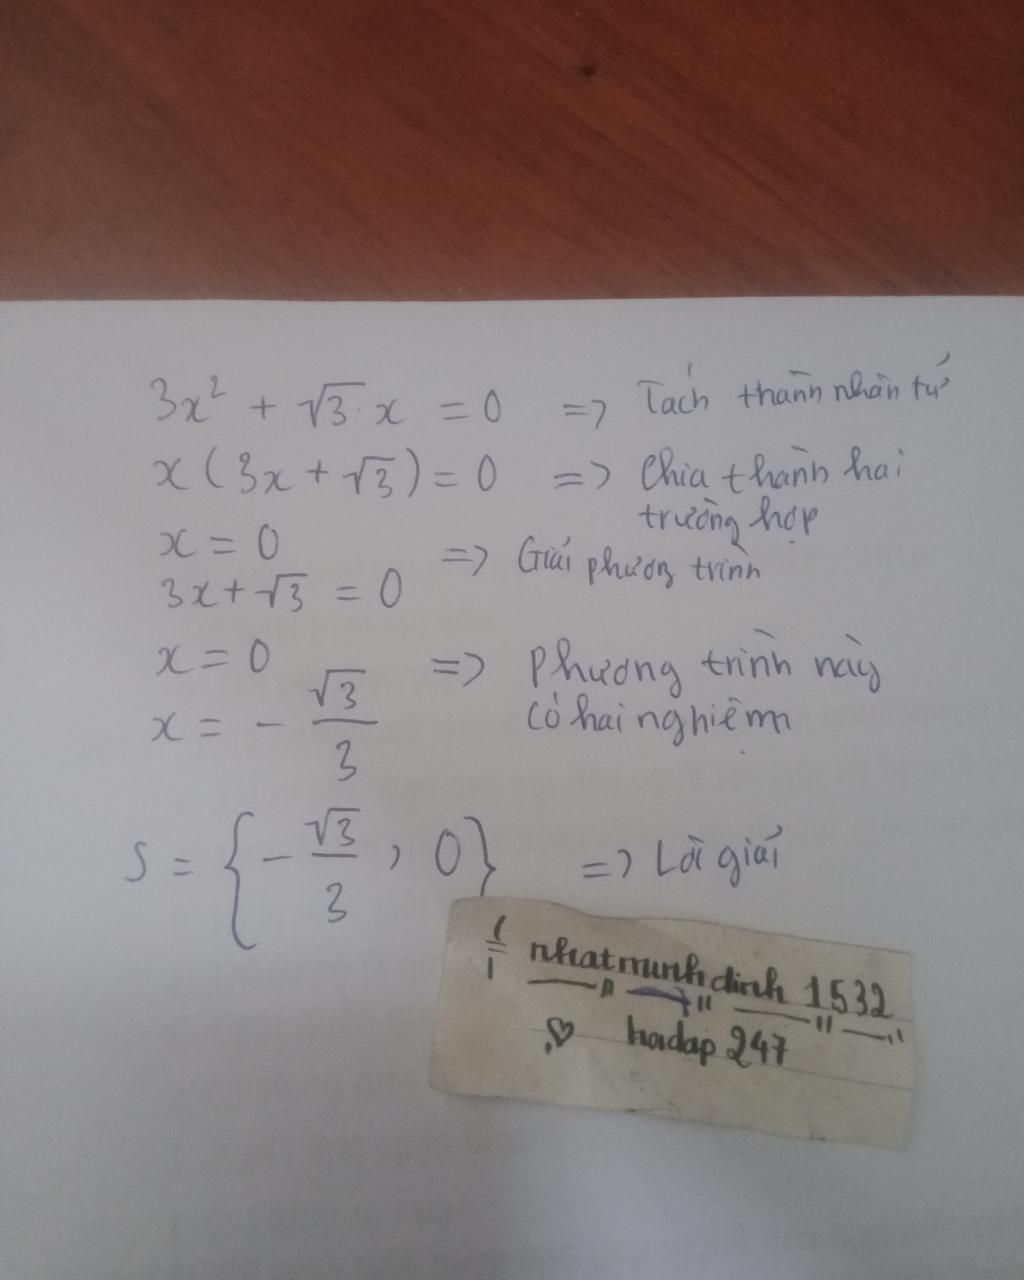 3x² + √3 x = 0 => Tách thành nhân tử
x(3x + √3) = 0 => Chia thành hai
trường hợp
x = 0
=> Giải phương trình
3x + √3 = 0
x = 0 => Phương trình này
x = - √3/3 có hai nghiệm
S = {- √3/3 , 0} => Lời giải
nhatminhdinh 1532
hoidap 247